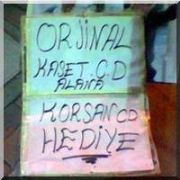 ORJİNAL
KASET.CD
ALANA
KORSAN CD
HEDİYE